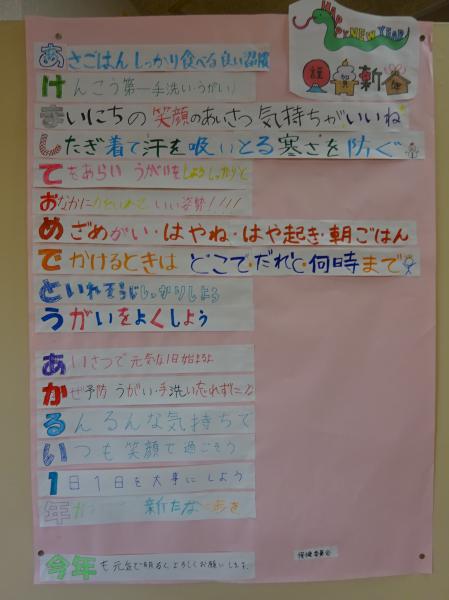 HAPPY NEW YEAR
謹賀新年
あさごはんしっかり食べる良い習慣
けんこう第一手洗い・うがい
まいにちの笑顔のあいさつ気持ちがいいね
したぎ着て汗を吸いとる寒さを防ぐ
てをあらいうがいをしようしっかりと
おなかに いい姿勢!!!!
めざめがい・はやね・はや起き・朝ごはん
でかけるときはどこで・だれと・何時まで
といれそうじしっかりしよう
うがいをよくしよう
あいさつで元気な1日始まるよ
かぜ予防うがい・手洗い忘れずに
るんるんな気持ちで
いつも笑顔で過ごそう
1日1日を大事にしよう
年が 新たな
今年も元気で明るく、よろしくお願いします。
保健委員会